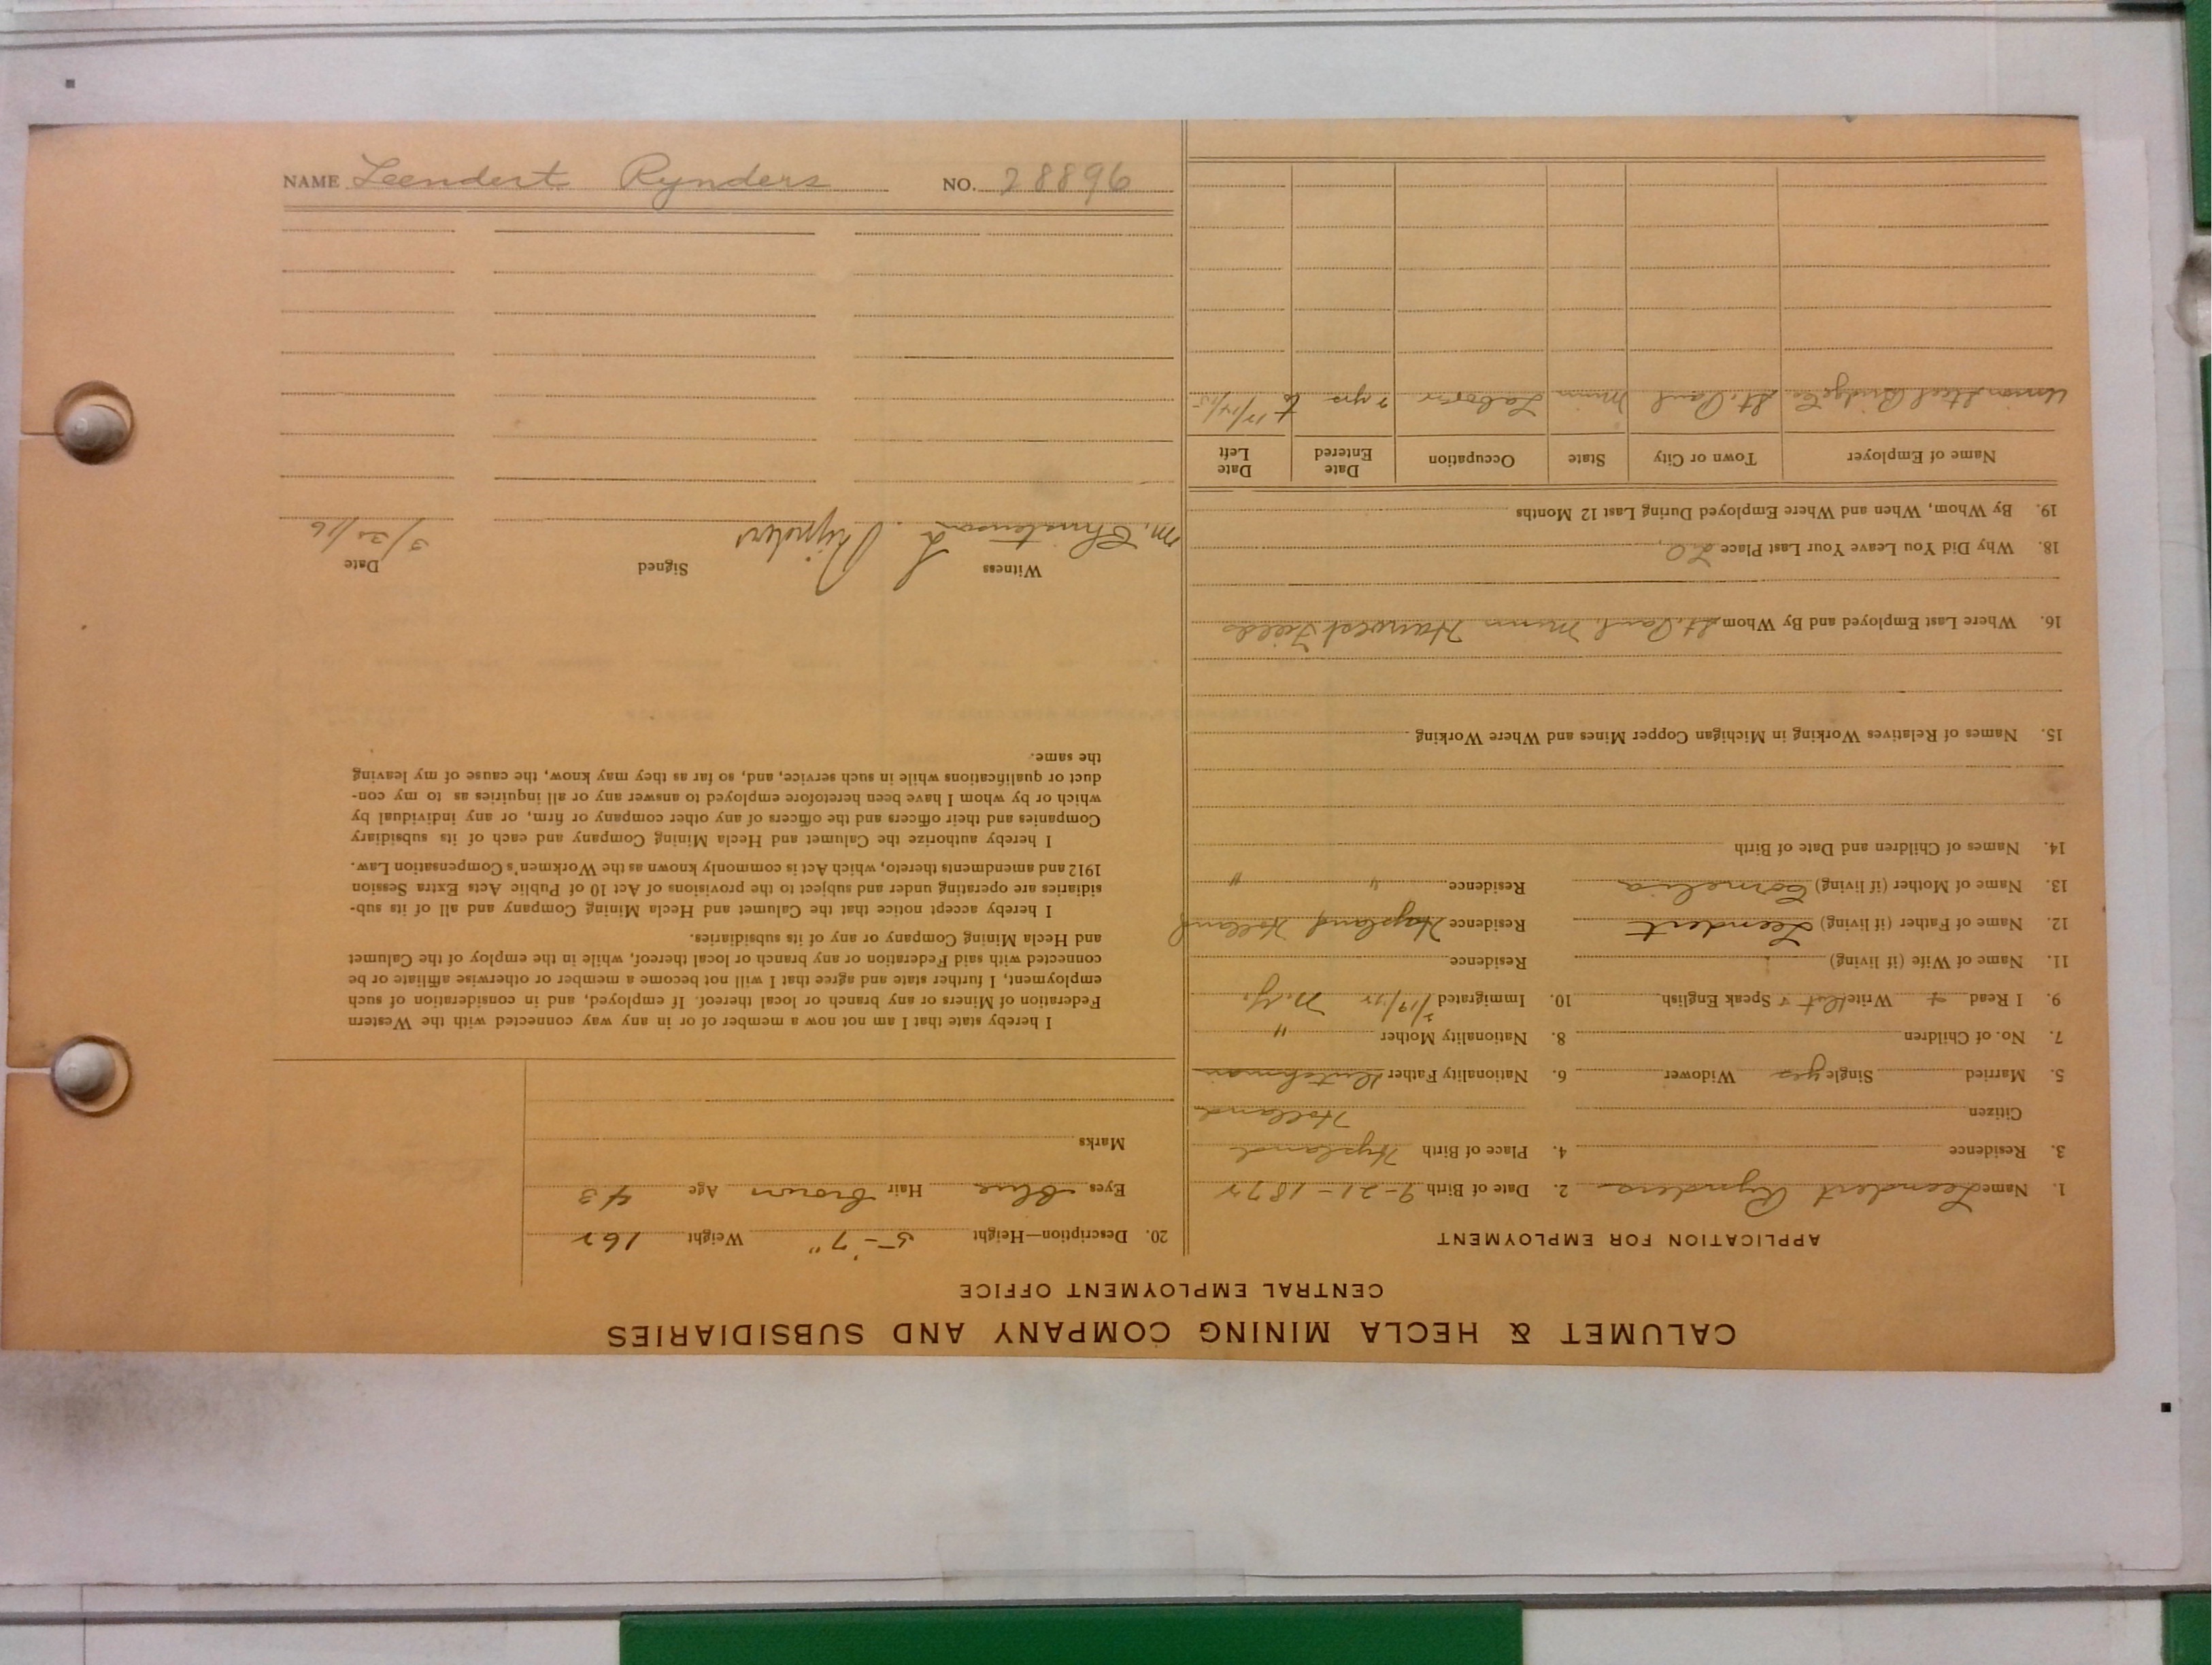 NAME Leendert Rynders NO. 28896
CALUMET & HECLA MINING COMPANY AND SUBSIDIARIES
CENTRAL EMPLOYMENT OFFICE
APPLICATION FOR EMPLOYMENT
1. Name Leendert Rynders 2. Date of Birth 9-21-1872
3. Residence 4. Place of Birth Hysland
Citizen Holland
5. Married Single yes Widower 6. Nationality Father Dutchman
7. No. of Children 8. Nationality Mother "
9. I Read + Write Dut + Speak English. 10. Immigrated N.Y.
11. Name of Wife (if living) Residence
12. Name of Father (if living) Leendert Residence Hysland Holland
13. Name of Mother (if living) Cornelia Residence " "
14. Names of Children and Date of Birth
15. Names of Relatives Working in Michigan Copper Mines and Where Working
16. Where Last Employed and By Whom St. Paul Minn Harvest Fields
18. Why Did You Leave Your Last Place L.O.
19. By Whom, When and Where Employed During Last 12 Months
Name of Employer Town or City State Occupation Date Entered Date Left
Union Steel Bridge Co St. Paul Minn Laborer 2 yrs to 12/14/15
20. Description—Height 5-'7" Weight 162
Eyes Blue Hair brown Age 43
Marks
I hereby state that I am not now a member of or in any way connected with the Western
Federation of Miners or any branch or local thereof. If employed, and in consideration of such
employment, I further state and agree that I will not become a member or otherwise affiliate or be
connected with said Federation or any branch or local thereof, while in the employ of the Calumet
and Hecla Mining Company or any of its subsidiaries.
I hereby accept notice that the Calumet and Hecla Mining Company and all of its sub-
sidiaries are operating under and subject to the provisions of Act 10 of Public Acts Extra Session
1912 and amendments thereto, which Act is commonly known as the Workmen's Compensation Law.
I hereby authorize the Calumet and Hecla Mining Company and each of its subsidiary
Companies and their officers and the officers of any other company or firm, or any individual by
which or by whom I have been heretofore employed to answer any or all inquiries as to my con-
duct or qualifications while in such service, and, so far as they may know, the cause of my leaving
the same.
Witness Signed Date
M. Christenson L. Rijnders 3/30/16